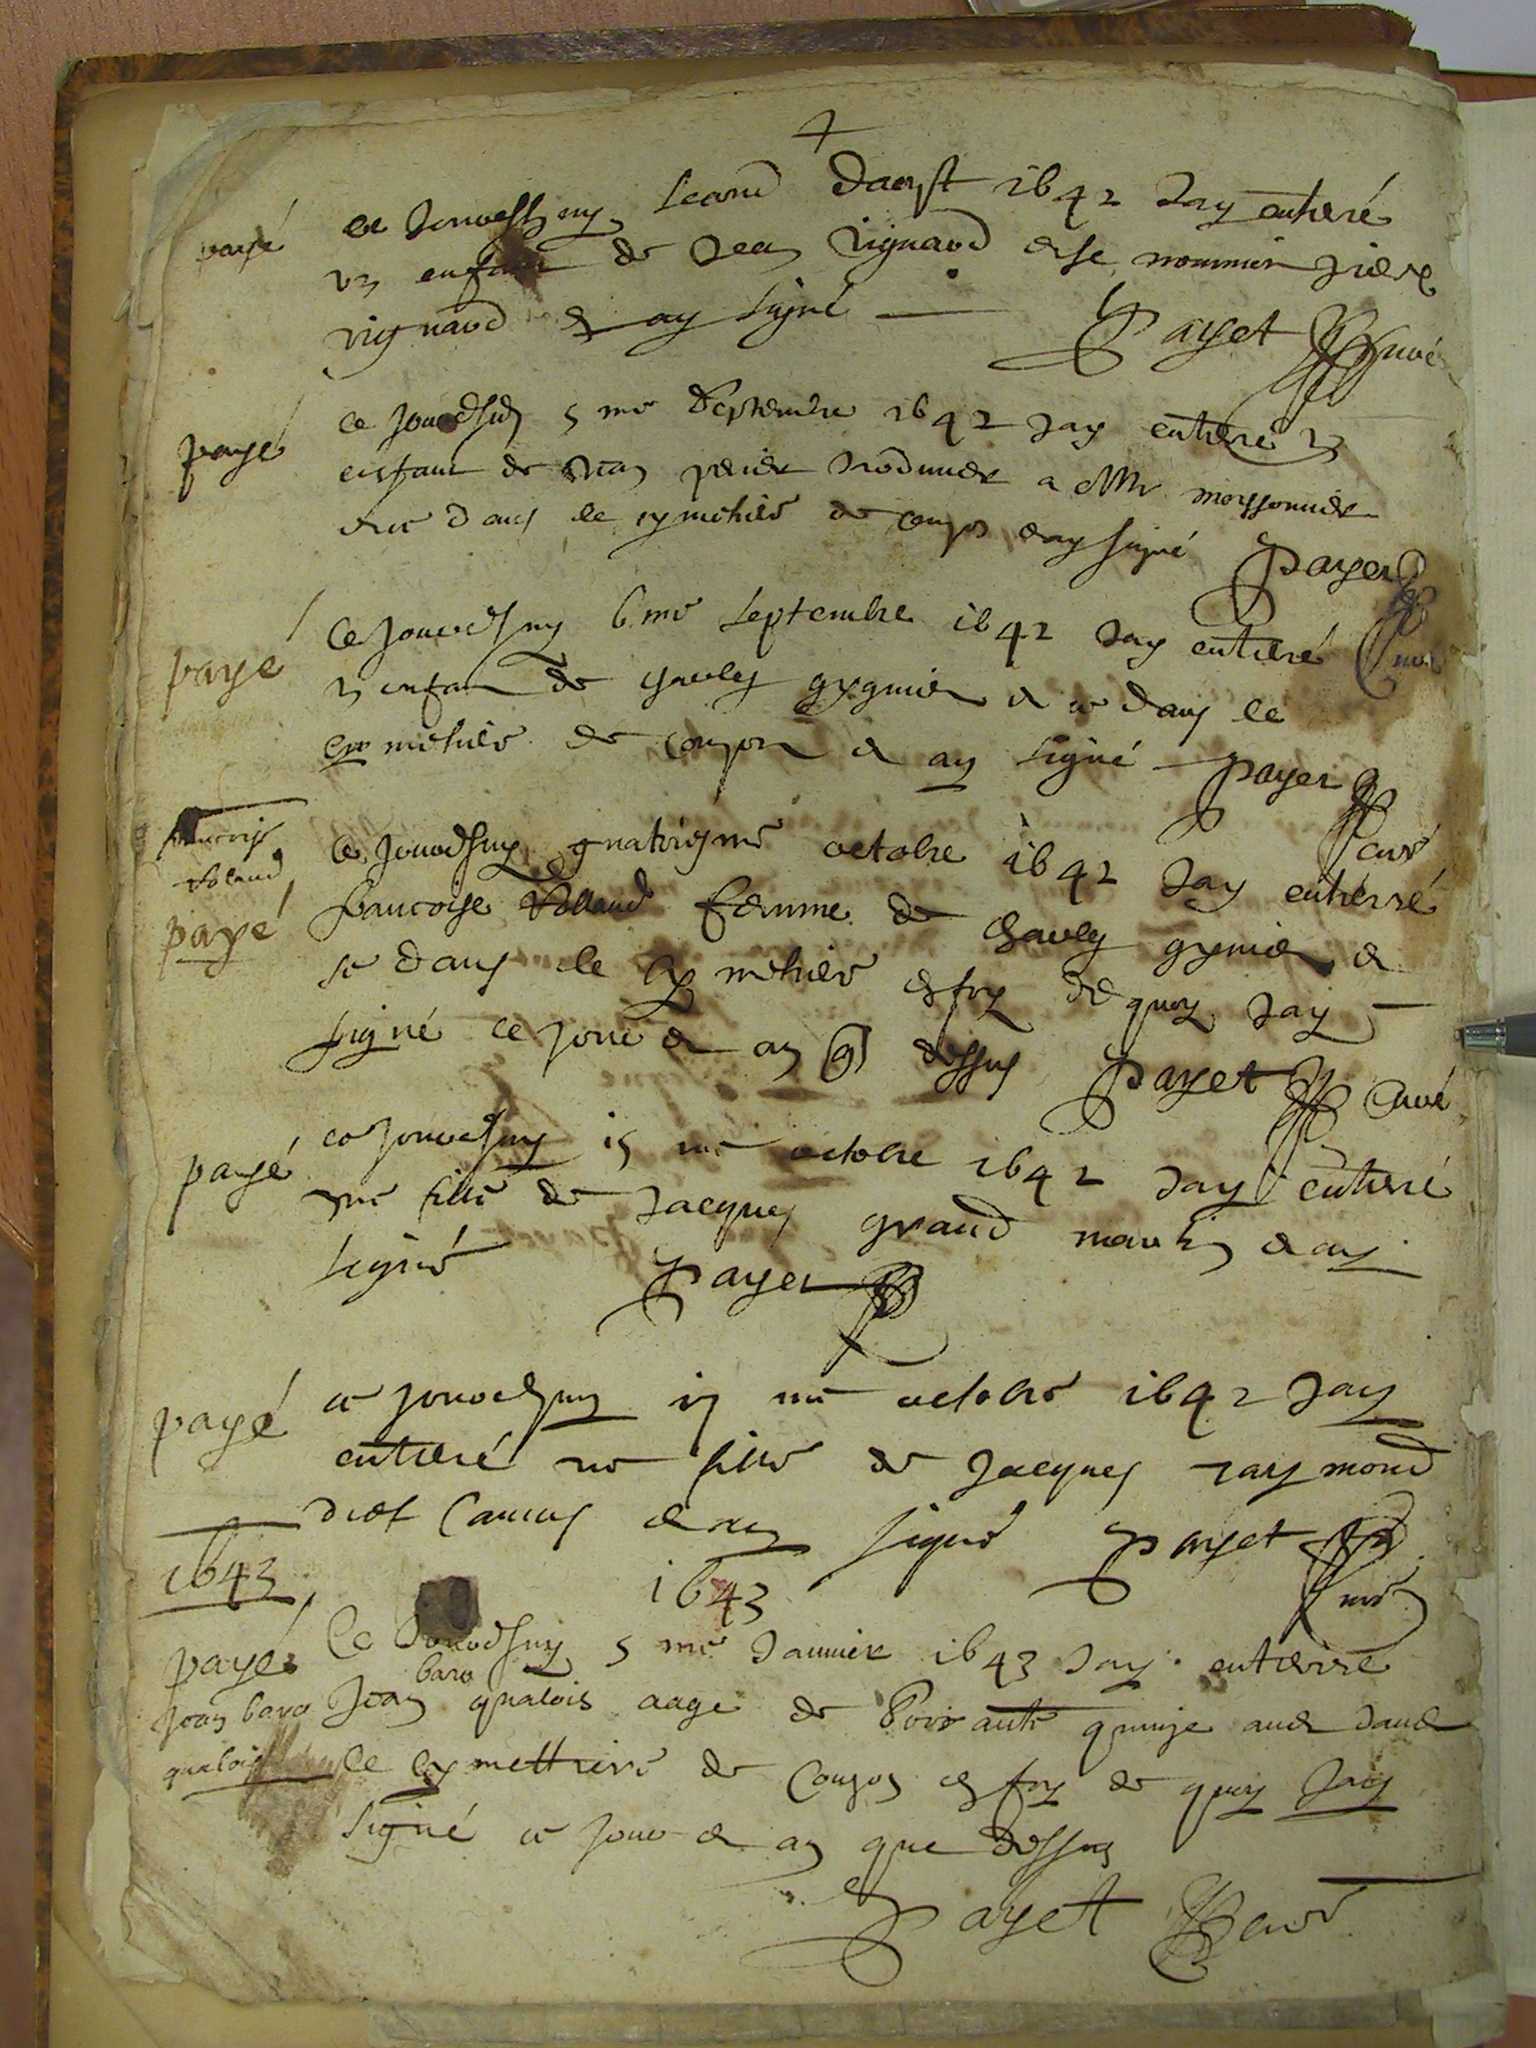 payé
ce Jourdhuy second daoust 1642 Jay entieré
un enfant de Jean vignaud et se nommoit piere
vignaud et ay signé Payet curé
payé
ce Jourdhuy 5 me Septembre 1642 Jay entieré un
enfant de Jean perier a Mr moyssonnier
dans le cymetiere de couzon et ay signé Payet
curé
payé
Ce Jourdhuy 6 me septembre 1642 Jay entieré
un enfan de gynier et ce dans le
cymetiere de couzon et ay signé Payet
curé
francoise
voland
payé
Ce Jourdhuy quatriesme octobre 1642 Jay entierré
francoise volland femme de gynier et
ce dans le cymetiere en foy de quoy Jay
signé ce jour et an que dessus Payet curé
payé
ce Jourdhuy 15 me octobre 1642 Jay entieré
une fille de Jacques grand et ay
signé Payet
payé
ce Jourdhuy me octobre 1642 Jay
entieré une fille de Jacques raymond
dict et ay signé Payet
curé
1643
1643
payé
Ce Jourdhuy 5 me Janvier 1643 Jay entierré
baro
Jean baro
Jean qualois aage de soixante quinze ans dans
qualois
le cymettiere de Couzon en foy de quoy Jay
signé ce jour et an que dessus
Payet curé